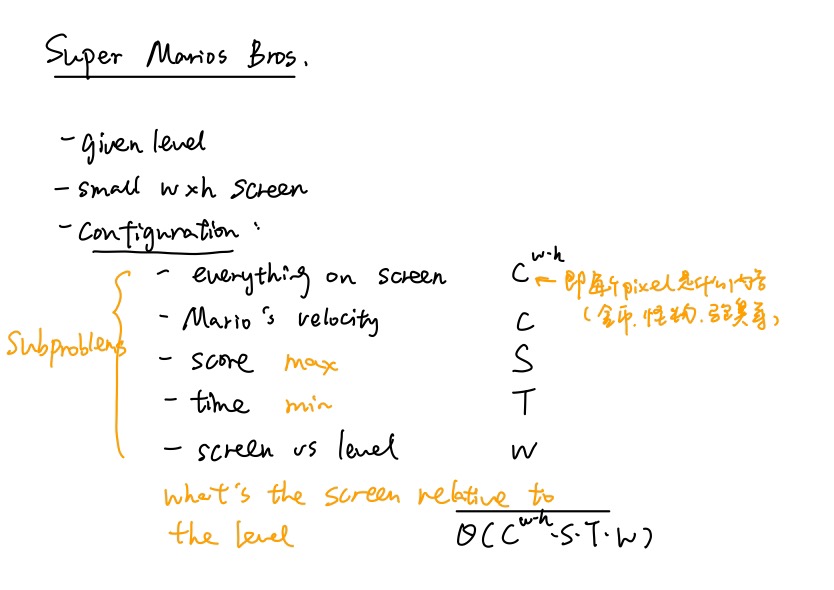 Super Marios Bros.
- given level
- small w×h screen
- Configuration :
Subproblems
- everything on screen C^w·h ← 即每个pixel是什么内容
(金币.怪物.马里奥等)
- Mario's velocity C
- score max S
- time min T
- screen vs level W
what's the screen relative to
the level Θ(C^w·h·S·T·W)